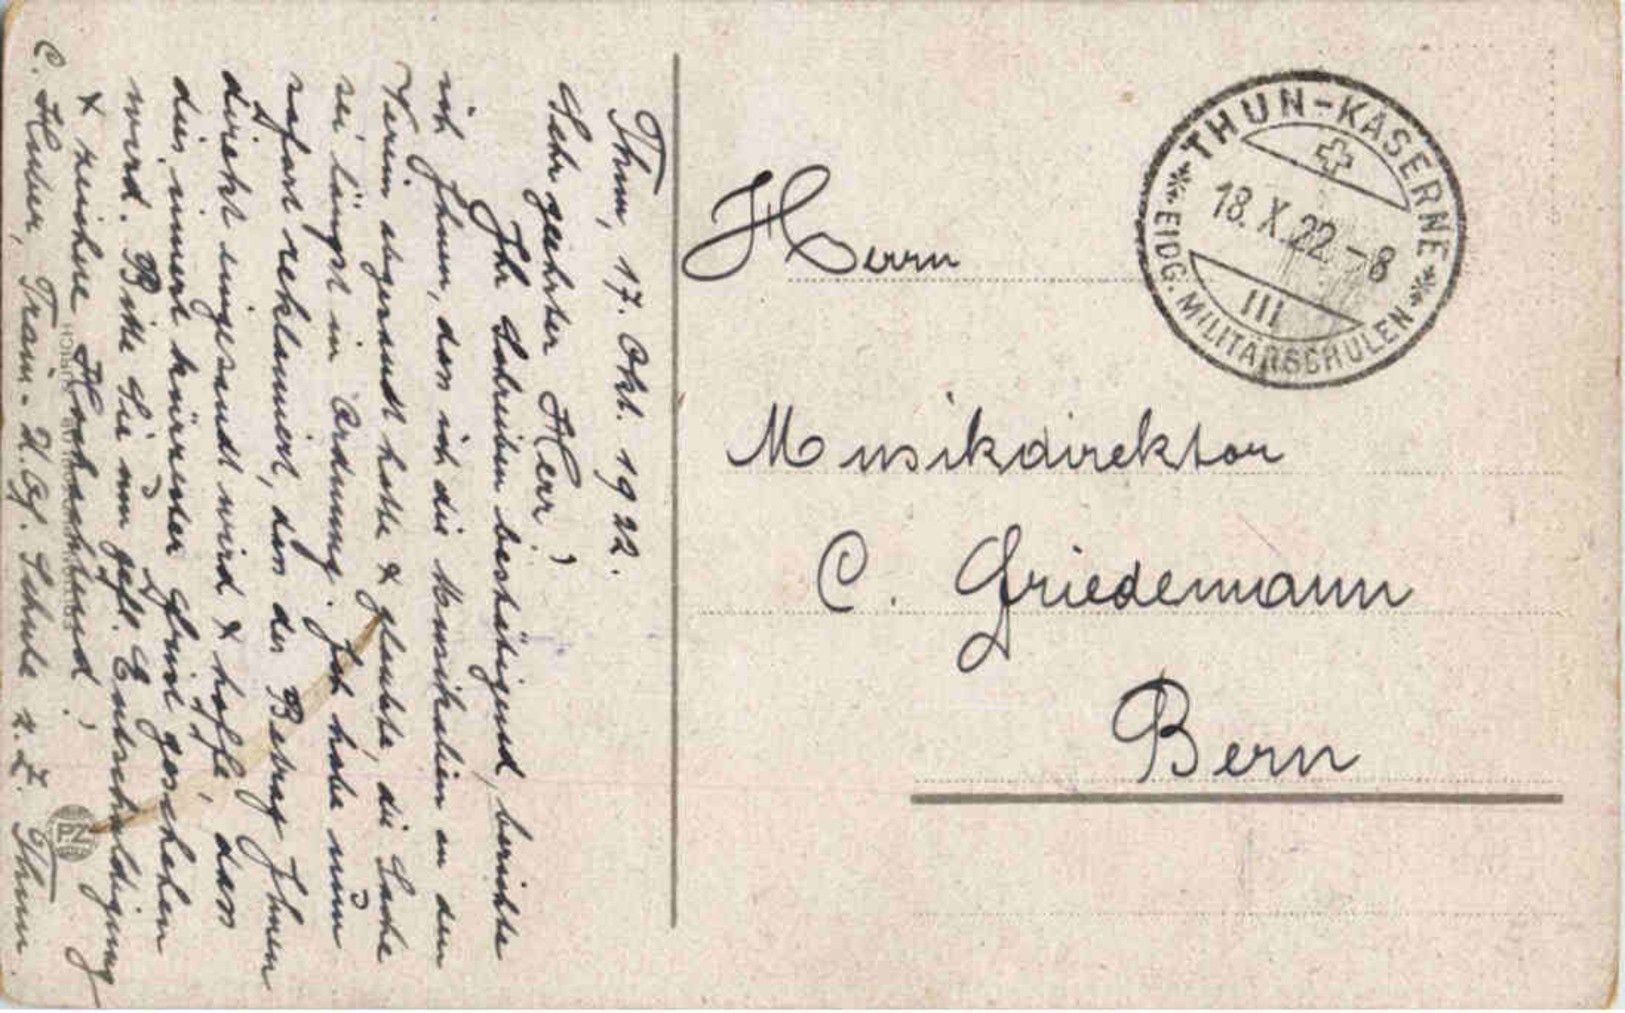 Thun, 17. Okt. 1922.
Sehr geehrter Herr!
Ihr Schreiben bestätigend, berichte
ich Ihnen, dass ich die Musikalien an den
Verein abgesandt hatte & glaubte, die Sache
sei längst in Ordnung. Ich habe nun
sofort reklamiert, dass der Betrag Ihnen
direkt eingesandt wird & hoffe, dass
dies innert kürzester Frist geschehen
wird. Bitte Sie um gefl. Entschuldigung
& zeichne Hochachtend!
C. Huber, Train-U.Of. Schule z. Z. Thun.
PZ
THUN-KASERNE
18.X.22.-8
III
EIDG. MILITÄRSCHULEN
Herrn
Musikdirektor
C. Friedemann
Bern